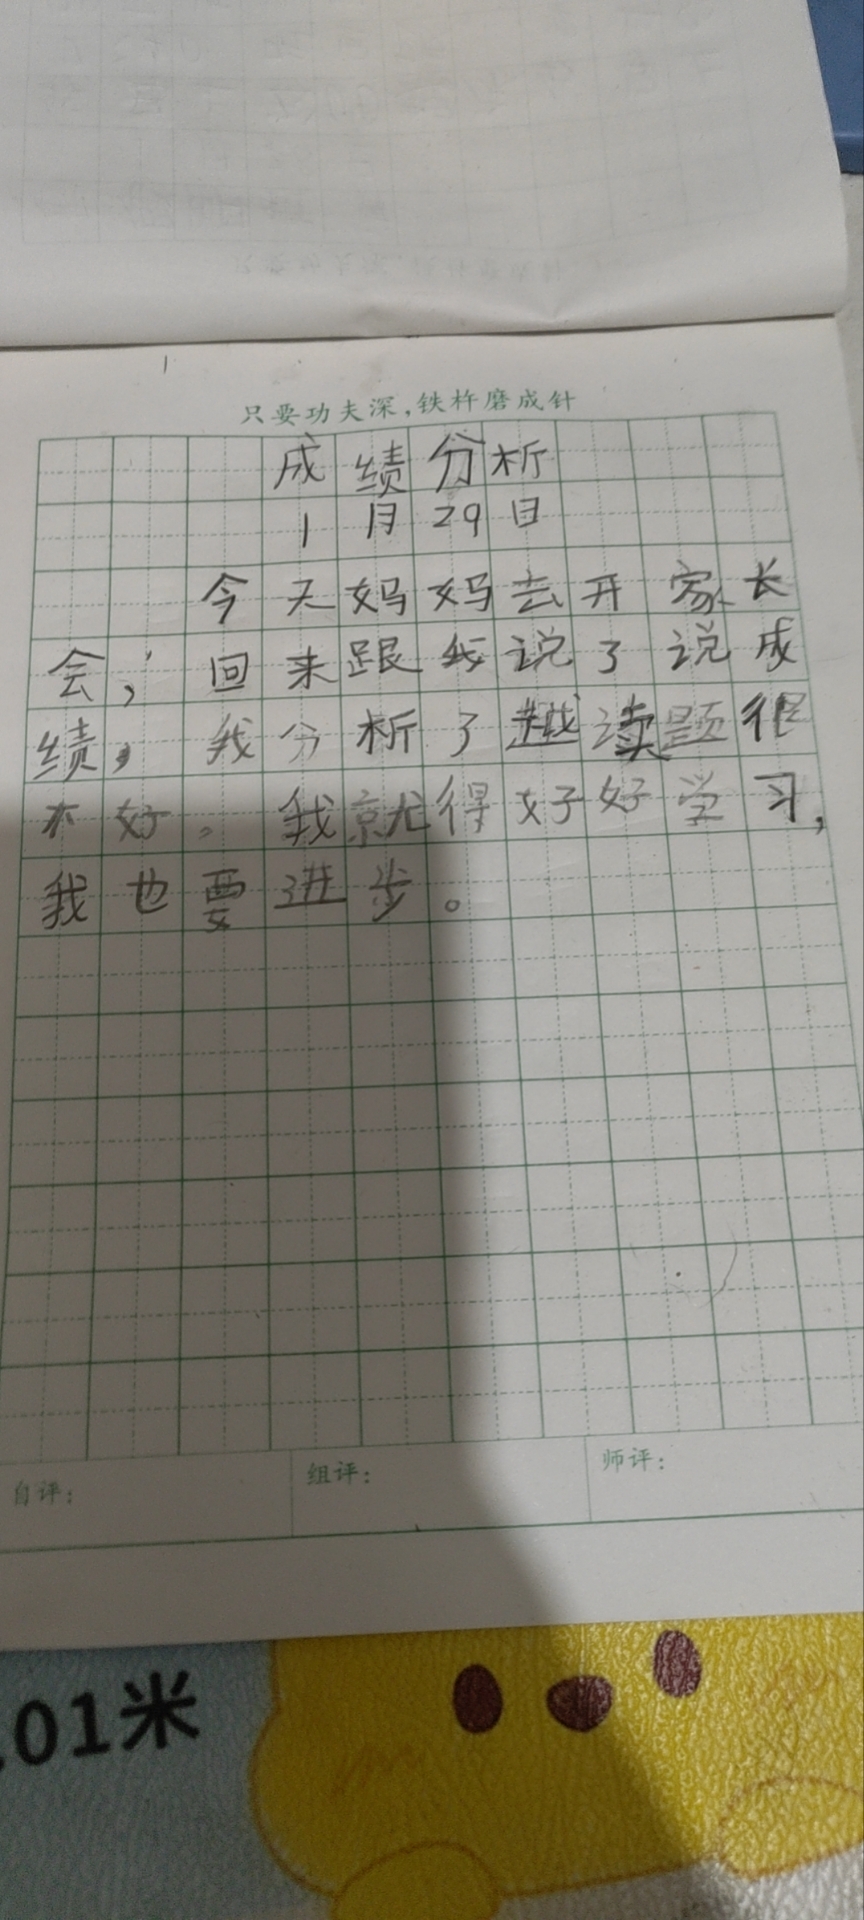 只要功夫深,铁杵磨成针
成绩分析
1月29日
今天妈妈去开家长
会,回来跟我说了说成
绩,我分析了越读题很
不好。我就得好好学习,
我也要进步。
自评:
组评:
师评:
.01米